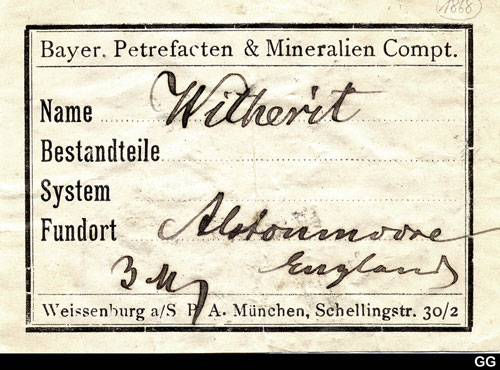 1868
Bayer. Petrefacten & Mineralien Compt.
Name Witherit
Bestandteile
System
Fundort Alstonmoore
England
3 M
Weissenburg a/S P. A. München, Schellingstr. 30/2
GG